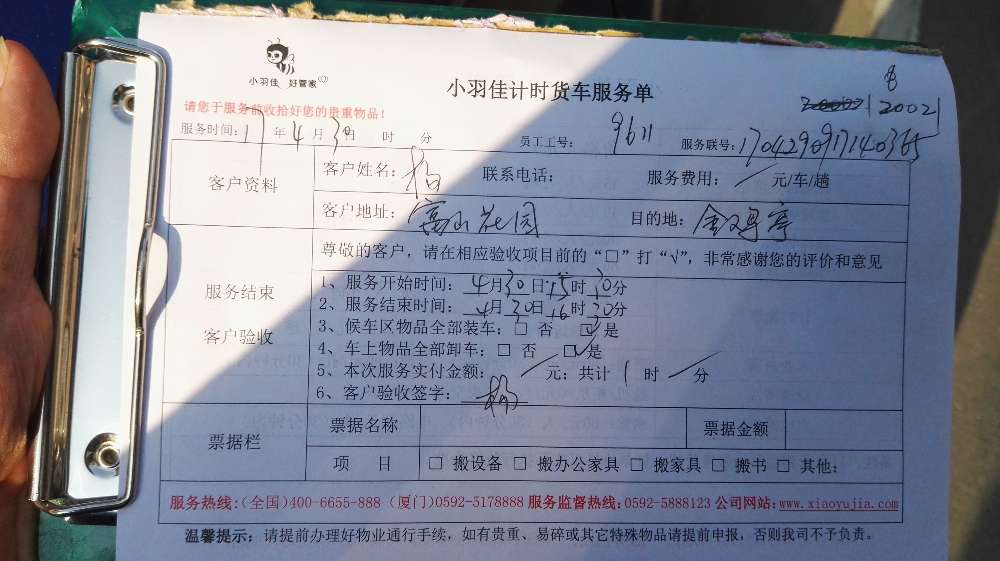 小羽佳 好管家
小羽佳计时货车服务单
12002
请您于服务前收拾好您的贵重物品！
服务时间：17年4月30日 时 分 员工工号：9611 服务联号：1704290917140365
客户资料
客户姓名：杨 联系电话： 服务费用：/元/车/趟
客户地址：富山花园 目的地：
尊敬的客户，请在相应验收项目前的“□”打“√”，非常感谢您的评价和意见
服务结束
客户验收
1、服务开始时间：4月30日15时30分
2、服务结束时间：4月30日16时30分
3、候车区物品全部装车：□ 否 ☑是
4、车上物品全部卸车：□ 否 ☑是
5、本次服务实付金额：/元；共计1时/分
6、客户验收签字：杨
票据栏
票据名称 票据金额
项 目 □ 搬设备 □ 搬办公家具 □ 搬家具 □ 搬书 □ 其他：
服务热线:(全国)400-6655-888（厦门)0592-5178888 服务监督热线:0592-5888123 公司网站:www.xiaoyujia.com
温馨提示：请提前办理好物业通行手续，如有贵重、易碎或其它特殊物品请提前申报，否则我司不予负责。